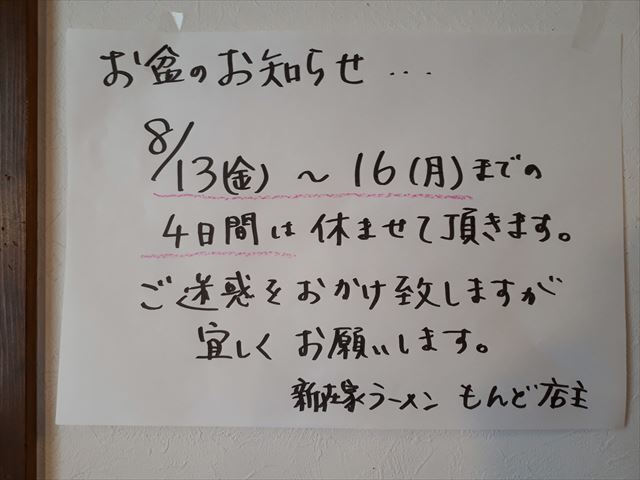 お盆のお知らせ…
8/13(金)～16(月)までの
4日間は休ませて頂きます。
ご迷惑をおかけ致しますが
宜しくお願いします。
新在家ラーメン もんど店主